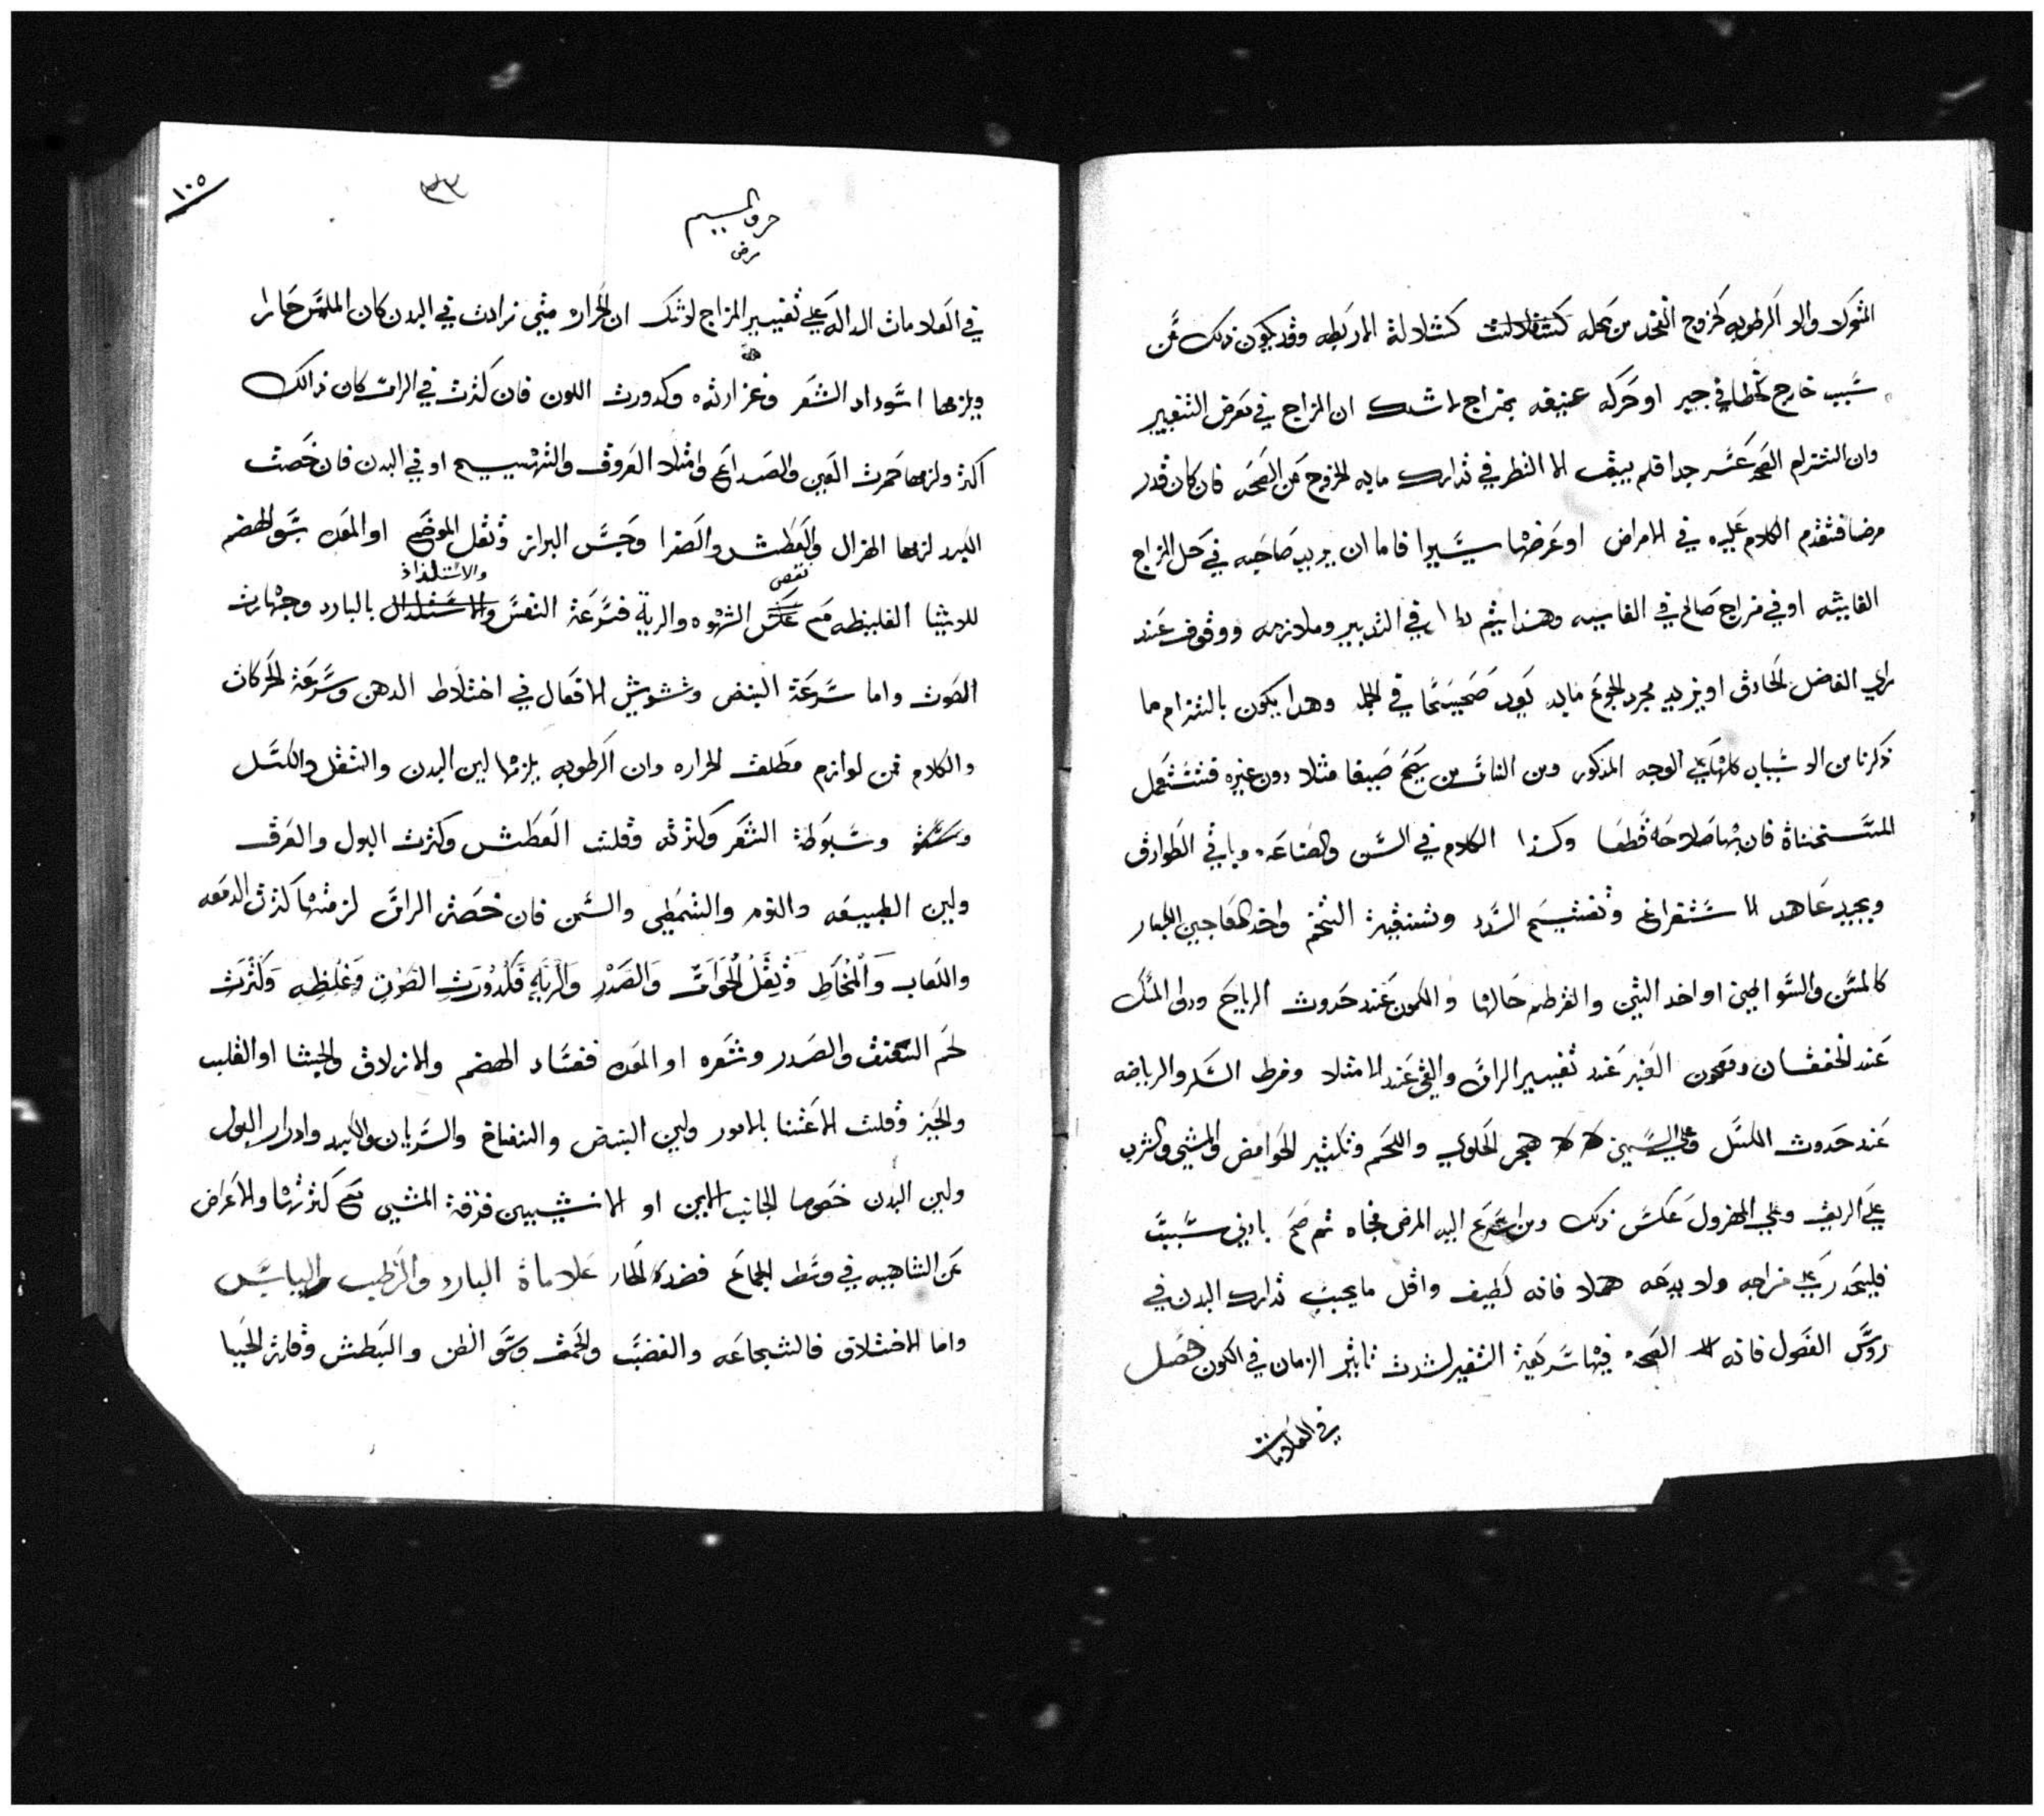 المتحركة والا الرطوبه كخروج الفخد من محله كشلالة الاربطه وقد يكون ذلك عن
سبب خارج كخطا في جبر او حركه عنيفه بمزاج لاشك ان المزاج في معرض التغيير
وان التزام الصحة عسر جدا فلم يبق الا النظر في تدارك مابه الخروج عن الصحه فان كان قدر
مرضا فتقدم الكلام عليه في الامراض او عرضها يسيرا فاما ان يريد صاحبه في حل المزاج
الفايته او في مزاج صالح في الغايه وهذا يتم في التدبير وملازمه ووقوف عند
راي الفاضل الحادق او يزيد مجرد الجوع مابه يعود صحيحا في الجمله وهدا يكون بالتزام ما
ذكرنا من الاسباب كلها على الوجه المذكور ومن الناس من يصح صيفا مثلا دون غيره فتستعمل
المستحسناة فان بها صلاحه قطعا وكذا الكلام في السن والصناعه وباقي الطوارق
ويجيد عاهد الاستفراغ وتفتيح السدد وتنقية التخم واخد المعاجين الكبار
كالمسن والسوالجين او اخد التين والقرطم حالها والكمون عند حدوث الرياح ودوا المسك
عند الخفقان ومعجون العنبر عند تغيير الراس والقي عند الامتلا وفرط السكر والرياضه
عند حدوث الكسل وعلى السمين هجر الحلوي واللحم وتكثير الحوامض والمشي والشرب
على الريق وعلى المهزول عكس ذلك ومن اسرع اليه المرض فجاه ثم صح بادني سبب
فليحدر على مزاجه ولا يدعه هملا فانه لطيف واقل مايجب تدارك البدن في
روس الفصول فانه الصحة فيها سريعة التغير لشدت تاثير الزمان في الكون فصل
في العلامات
١٠٥
٣٣
حرف الميم
مرض
في العلامات الداله على تغيير المزاج لاشك ان الحرارة متى زادت في البدن كان الملمس حارا
ويلزمها اسوداد الشعر وغزارته وكدورت اللون فان كثرت في الراس كان ذالك
اكثر ولزمها حمرت العين والصداع وامتلاء العروق والتهييج او في البدن فان خصت
الكبد لزمها الهزال والعطش والصفرا وحبس البراز وثقل الموضع او المعده بسو الهضم
للاشيا الغليظه مع نقص الشهوه والرية فسرعة النفس والاستلذاذ بالبارد وجهارت
الصوت واما سرعة النبض وتشويش الافعال في اختلاط الدهن وسرعة الحركات
والكلام فمن لوازم مطلق الحراره وان الرطوبه يلزمها لين البدن والثقل والكسل
وسبوطة الشعر وكثرته وقلت العطش وكثرت البول والعرق
ولين الطبيعه والنوم والتمطي والسمن فان خصت الراس لزمتها كثرت الدمعه
واللعاب والمخاط وثقل الحواس والصدر والرية فكدورت الصوت وغلظه وكثرت
لحم العنق والصدر وشعره او المعده ففساد الهضم والازلاق والجشا او القلب
والجبن وقلت الاعتنا بالامور ولين النبض والنفاخ والسريان والكبد وادرار البول
ولين البدن خصوصا الجانب الايمن او الانثيين فرقة المني مع كثرتها والاعراض
عن التناهيه في وسط الجماع فضده الحار علاماة البارد والرطب واليابس
واما الاختلاق فالشجاعه والغضب والحمق وسو الظن والبطش وقلت الحيا